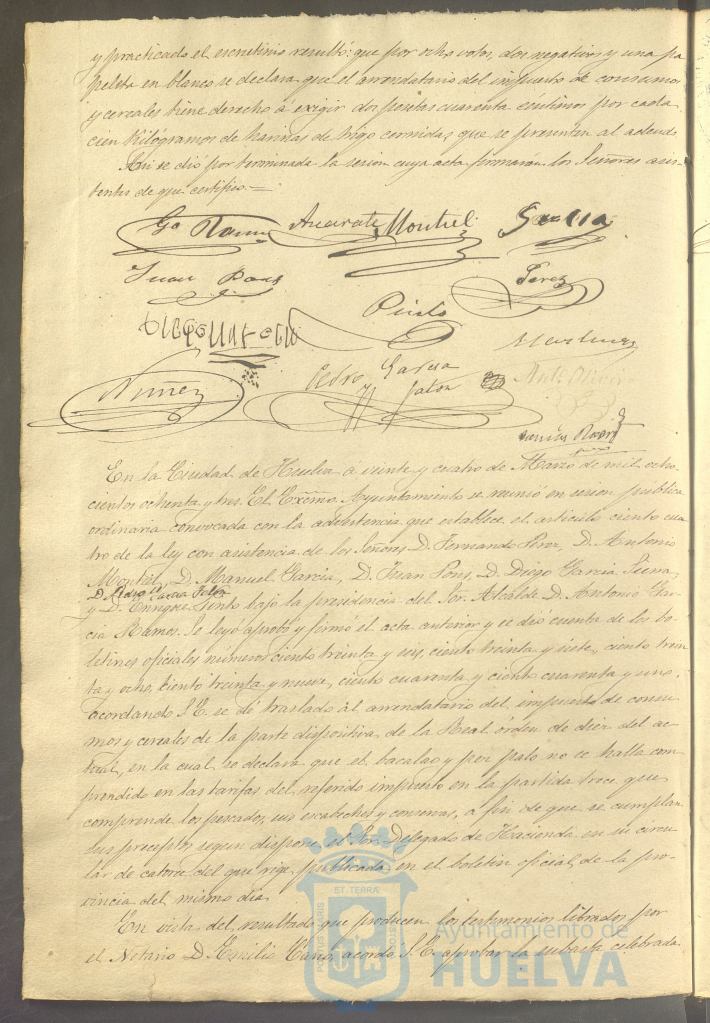 y practicado el escrutinio resultó: que por ocho votos, dos negativos y una pa
peleta en blanco se declara que el arrendatario del impuesto de consumos
y cereales tiene derecho á exigir dos pesetas cuarenta céntimos por cada
cien kilógramos de harinas de trigo cernidas que se presenten al adeudo
Asi se dió por terminada la sesion cuya acta firmarán los Señores asis-
tentes de que certifico.=
Gª Ramos Azcarate Montiel Garcia
Juan Pons Perez
Pinto
Martinez
Nuñez Pedro Garcia
Jalon Antº Oliver
En la Ciudad de Huelva á veinte y cuatro de Marzo de mil ocho
cientos ochenta y tres. El Excmo. Ayuntamiento se reunió en sesion pública
ordinaria convocada con la advertencia que establece el articulo ciento cua
tro de la ley con asistencia de los Señores D. Fernando Perez, D. Antonio
Montiel, D. Manuel Garcia, D. Juan Pons, D. Diego Garcia
D. Pedro Garcia Jalon
y D. Enrique Pinto bajo la presidencia del Sor. Alcalde D. Antonio Gar-
cia Ramos. Se leyó aprobó y firmó el acta anterior y se dió cuenta de los bo-
letines oficiales números ciento treinta y seis, ciento treinta y siete, ciento trein
ta y ocho, ciento treinta y nueve, ciento cuarenta y ciento cuarenta y uno,
acordando S.E. se dé traslado al arrendatario del impuesto de consu-
mos y cereales de la parte dispositiva de la Real órden de diez del ac-
tual, en la cual se declara que el bacalao y pez palo no se halla com
prendido en las tarifas del referido impuesto en la partida trece que
comprende los pescados, sus escabeches y conservas, á fin de que se cumplan
sus preceptos segun dispone el Sor. Delegado de Hacienda en su circu
lar de catorce del que rige, publicada en el boletin oficial de la pro-
vincia del mismo dia.
En vista del resultado que producen los testimonios librados por
el Notario D. Emilio Cano, acordó S.E. aprobar la subasta celebrada
ST. TERRA
PORTUS MARIS
CUSTODIA
Ayuntamiento de
HUELVA